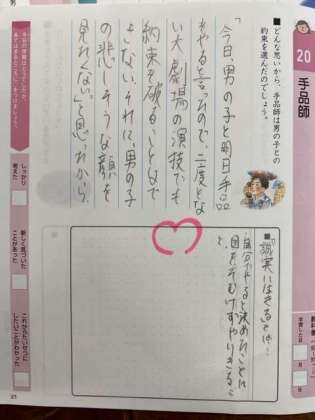 20
手品師
■どんな思いから、手品師は男の子との
約束を選んだのでしょう。
「今日、男の子と明日手品
をやると言ったので、二度とな
い大劇場の演技でも
約束を破ることはで
きない。それに、男の子
の悲しそうな顔を
見たくない。」と思ったから。
■誠実に生きるとは…
自分がやると決めたことに
目をそむけずやりきること
。
しっかり
考えた
新しく気づいた
ことがあった
これから大切にしたい
ことがわかった
学習した日
月
日
21